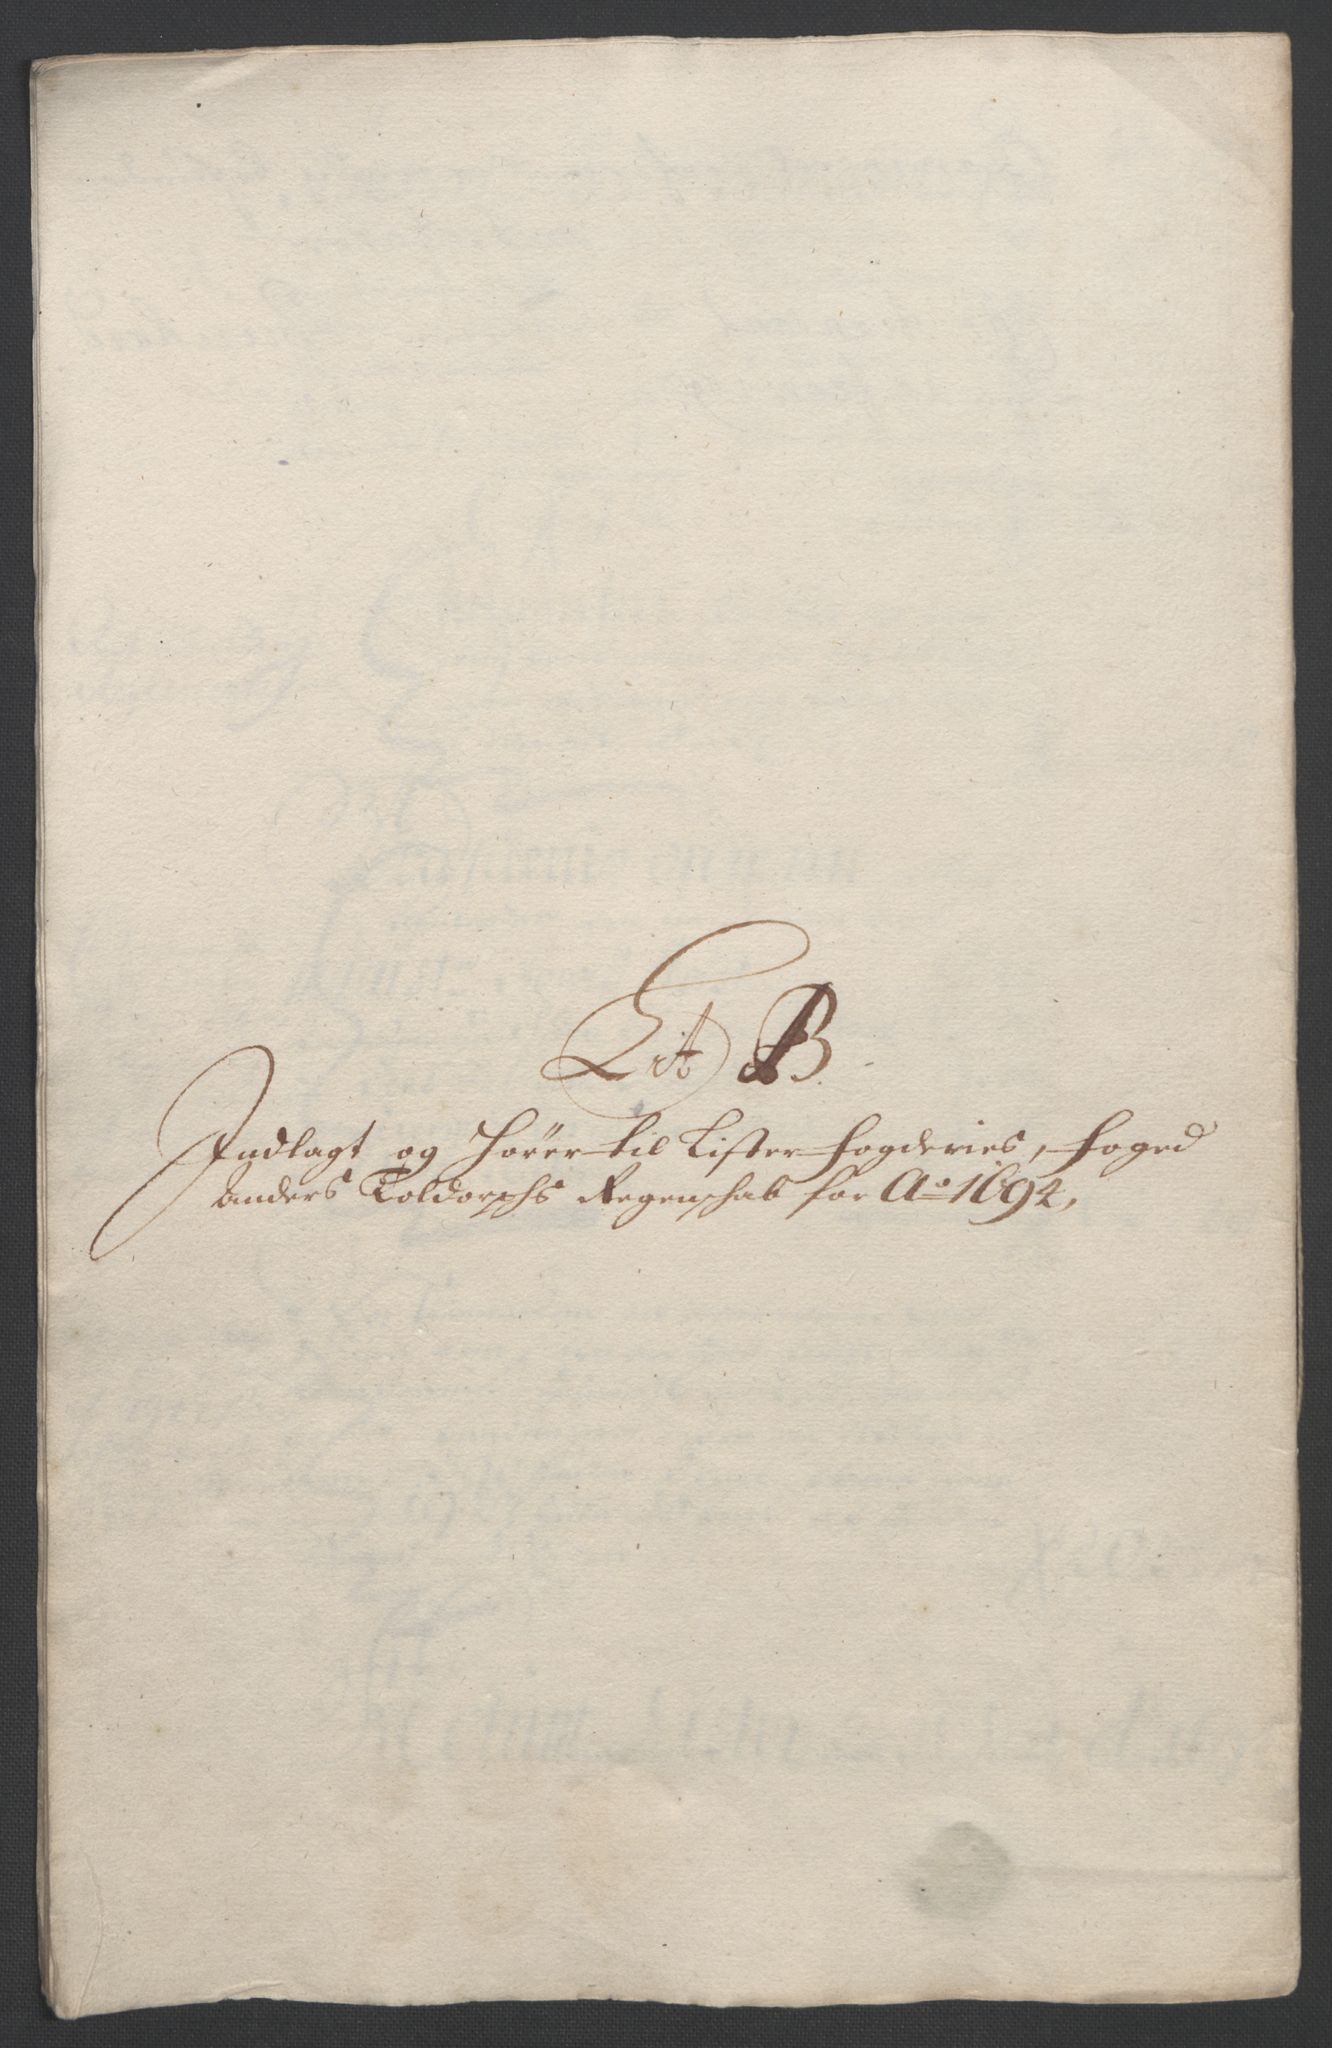 Lit B.
Indlagt og hører til Lister fogderies, foged
Anders Toldorphs Regenschab for Ao 1694,